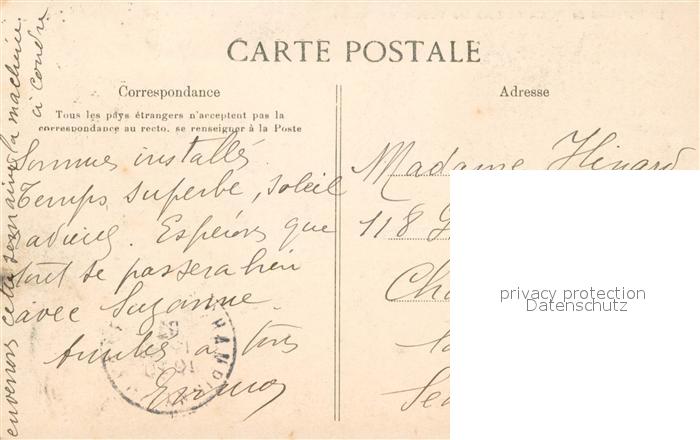 CARTE POSTALE
Correspondance
Tous les pays étrangers n'acceptent pas la
correspondance au recto, se renseigner à la Poste
Sommes installés.
Temps superbe, soleil
radieux. Espérons que
tout se passera bien
avec Suzanne.
Amitiés a tous
envenons cette semaine la machine
à coudre
Adresse
Madame Hinard
118
privacy protection
Datenschutz